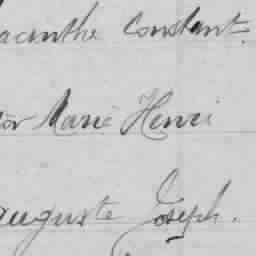 acinthe Constant.
or Marie Henri
auguste Joseph.